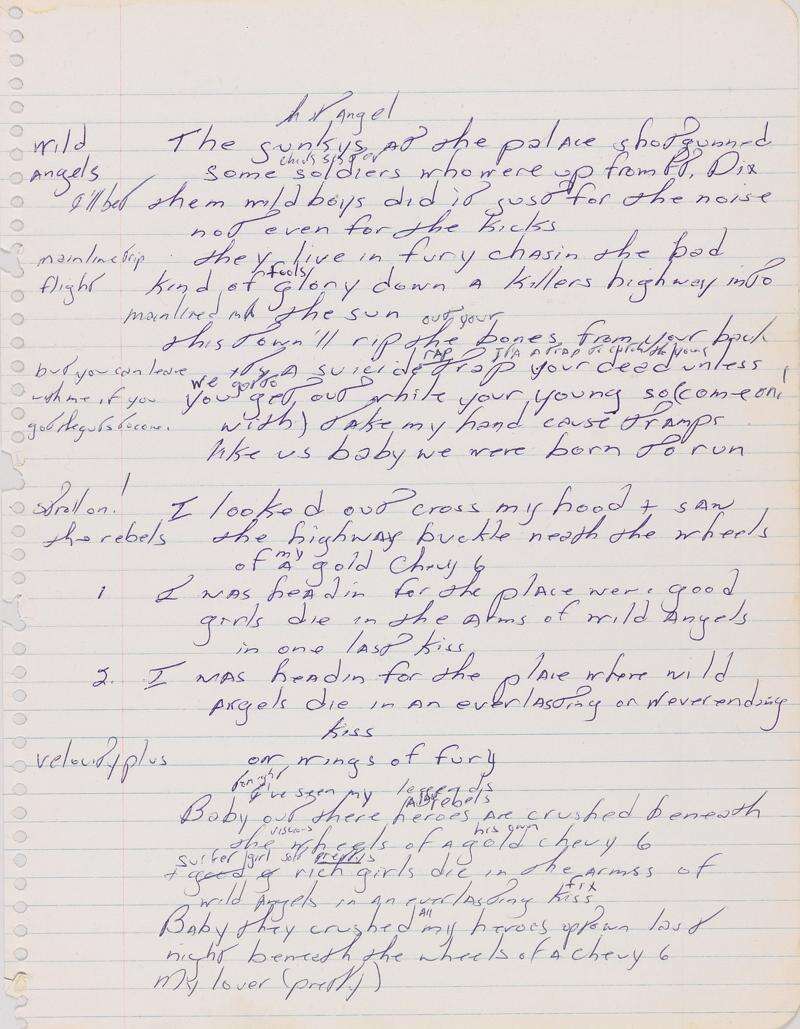 Angel
wild The sunkys at the palace shotgunned
chicks sister or
Angels some soldiers who were up from Ft. Dix
I'll bet them wild boys did it just for the noise
not even for the kicks
mainline trip they live in fury chasin the bad
fools
flight kind of glory down a killers highway into
mainlined the sun
out your
this town'll rip the bones from your back
rap it's a trap to catch the young
but you can leave it's a suicide trap your dead unless
we gotto
with me if you you get out while your young so (come on!
got the guts to come. with) take my hand cause tramps
like us baby we were born to run
stroll on! I looked out cross my hood + saw
the rebels the highway buckle neath the wheels
my
of a gold Chevy 6
1 I was headin for the place were good
girls die in the Arms of wild Angels
in one last kiss
2. I was headin for the place where wild
Angels die in an everlasting or Neverending
kiss
velocity plus on wings of fury
tonight
I've seen my legends
rebels
Baby out there heroes are crushed beneath
his own
the wheels of a gold chevy 6
girl
+ good g rich girls die in the armss of
fix
wild Angels in an everlasting kiss
All
Baby they crushed my heroes uptown last
night beneath the wheels of a chevy 6
My lover (pretty)